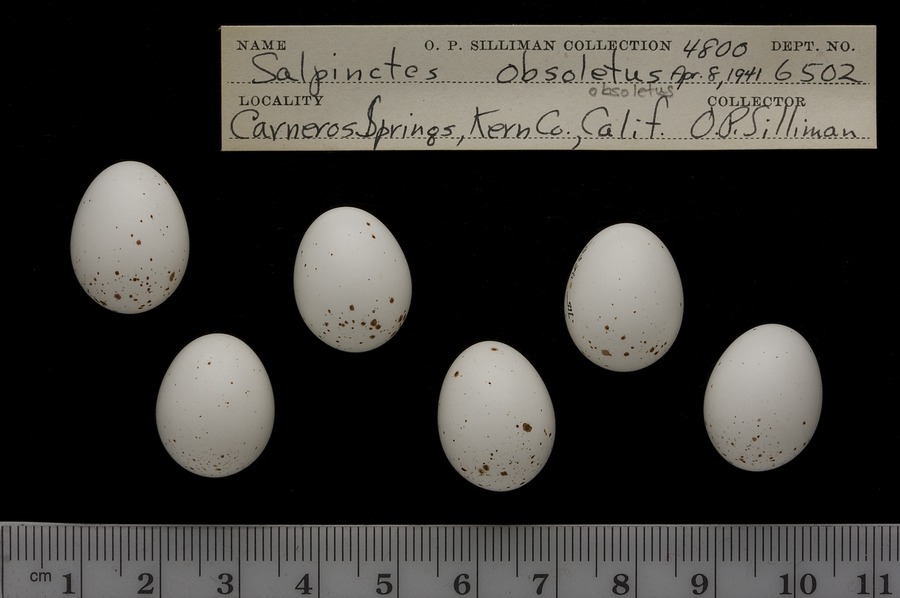 NAME O. P. SILLIMAN COLLECTION 4800 DEPT. NO.
Salpinctes obsoletus Apr. 8, 1941 6502
obsoletus
LOCALITY COLLECTOR
Carneros Springs, Kern Co., Calif. O.P. Silliman
cm 1 2 3 4 5 6 7 8 9 10 11